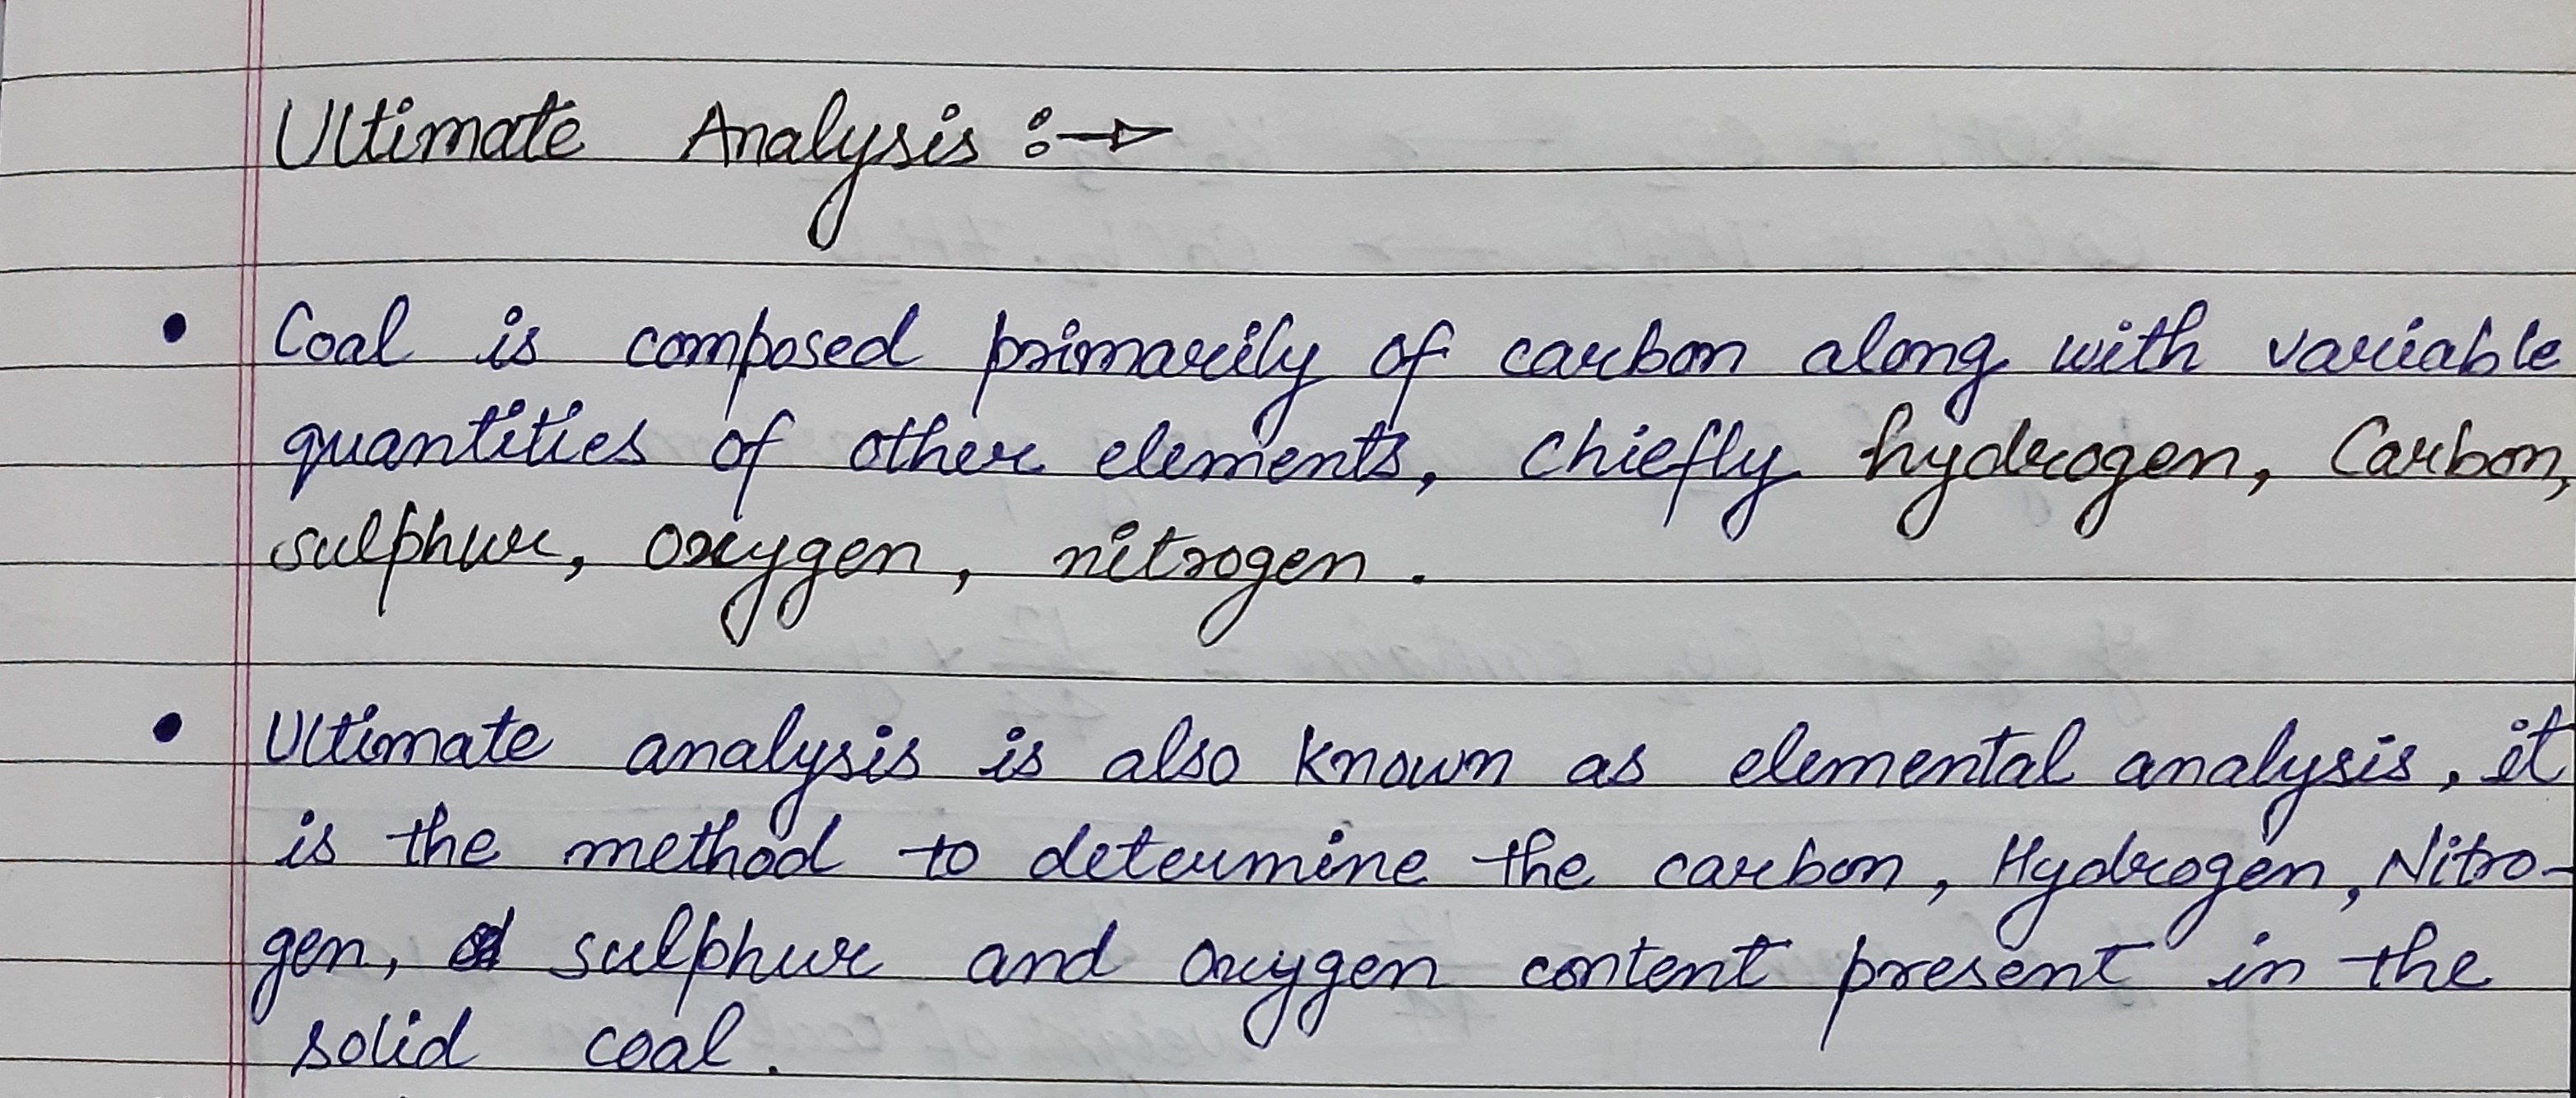 Ultimate Analysis :→
• Coal is composed primarily of carbon along with variable
quantities of other elements, chiefly hydrogen, Carbon,
sulphur, oxygen, nitrogen.
• Ultimate analysis is also known as elemental analysis, it
is the method to determine the carbon, Hydrogen, Nitro-
gen, sulphur and oxygen content present in the
solid coal.